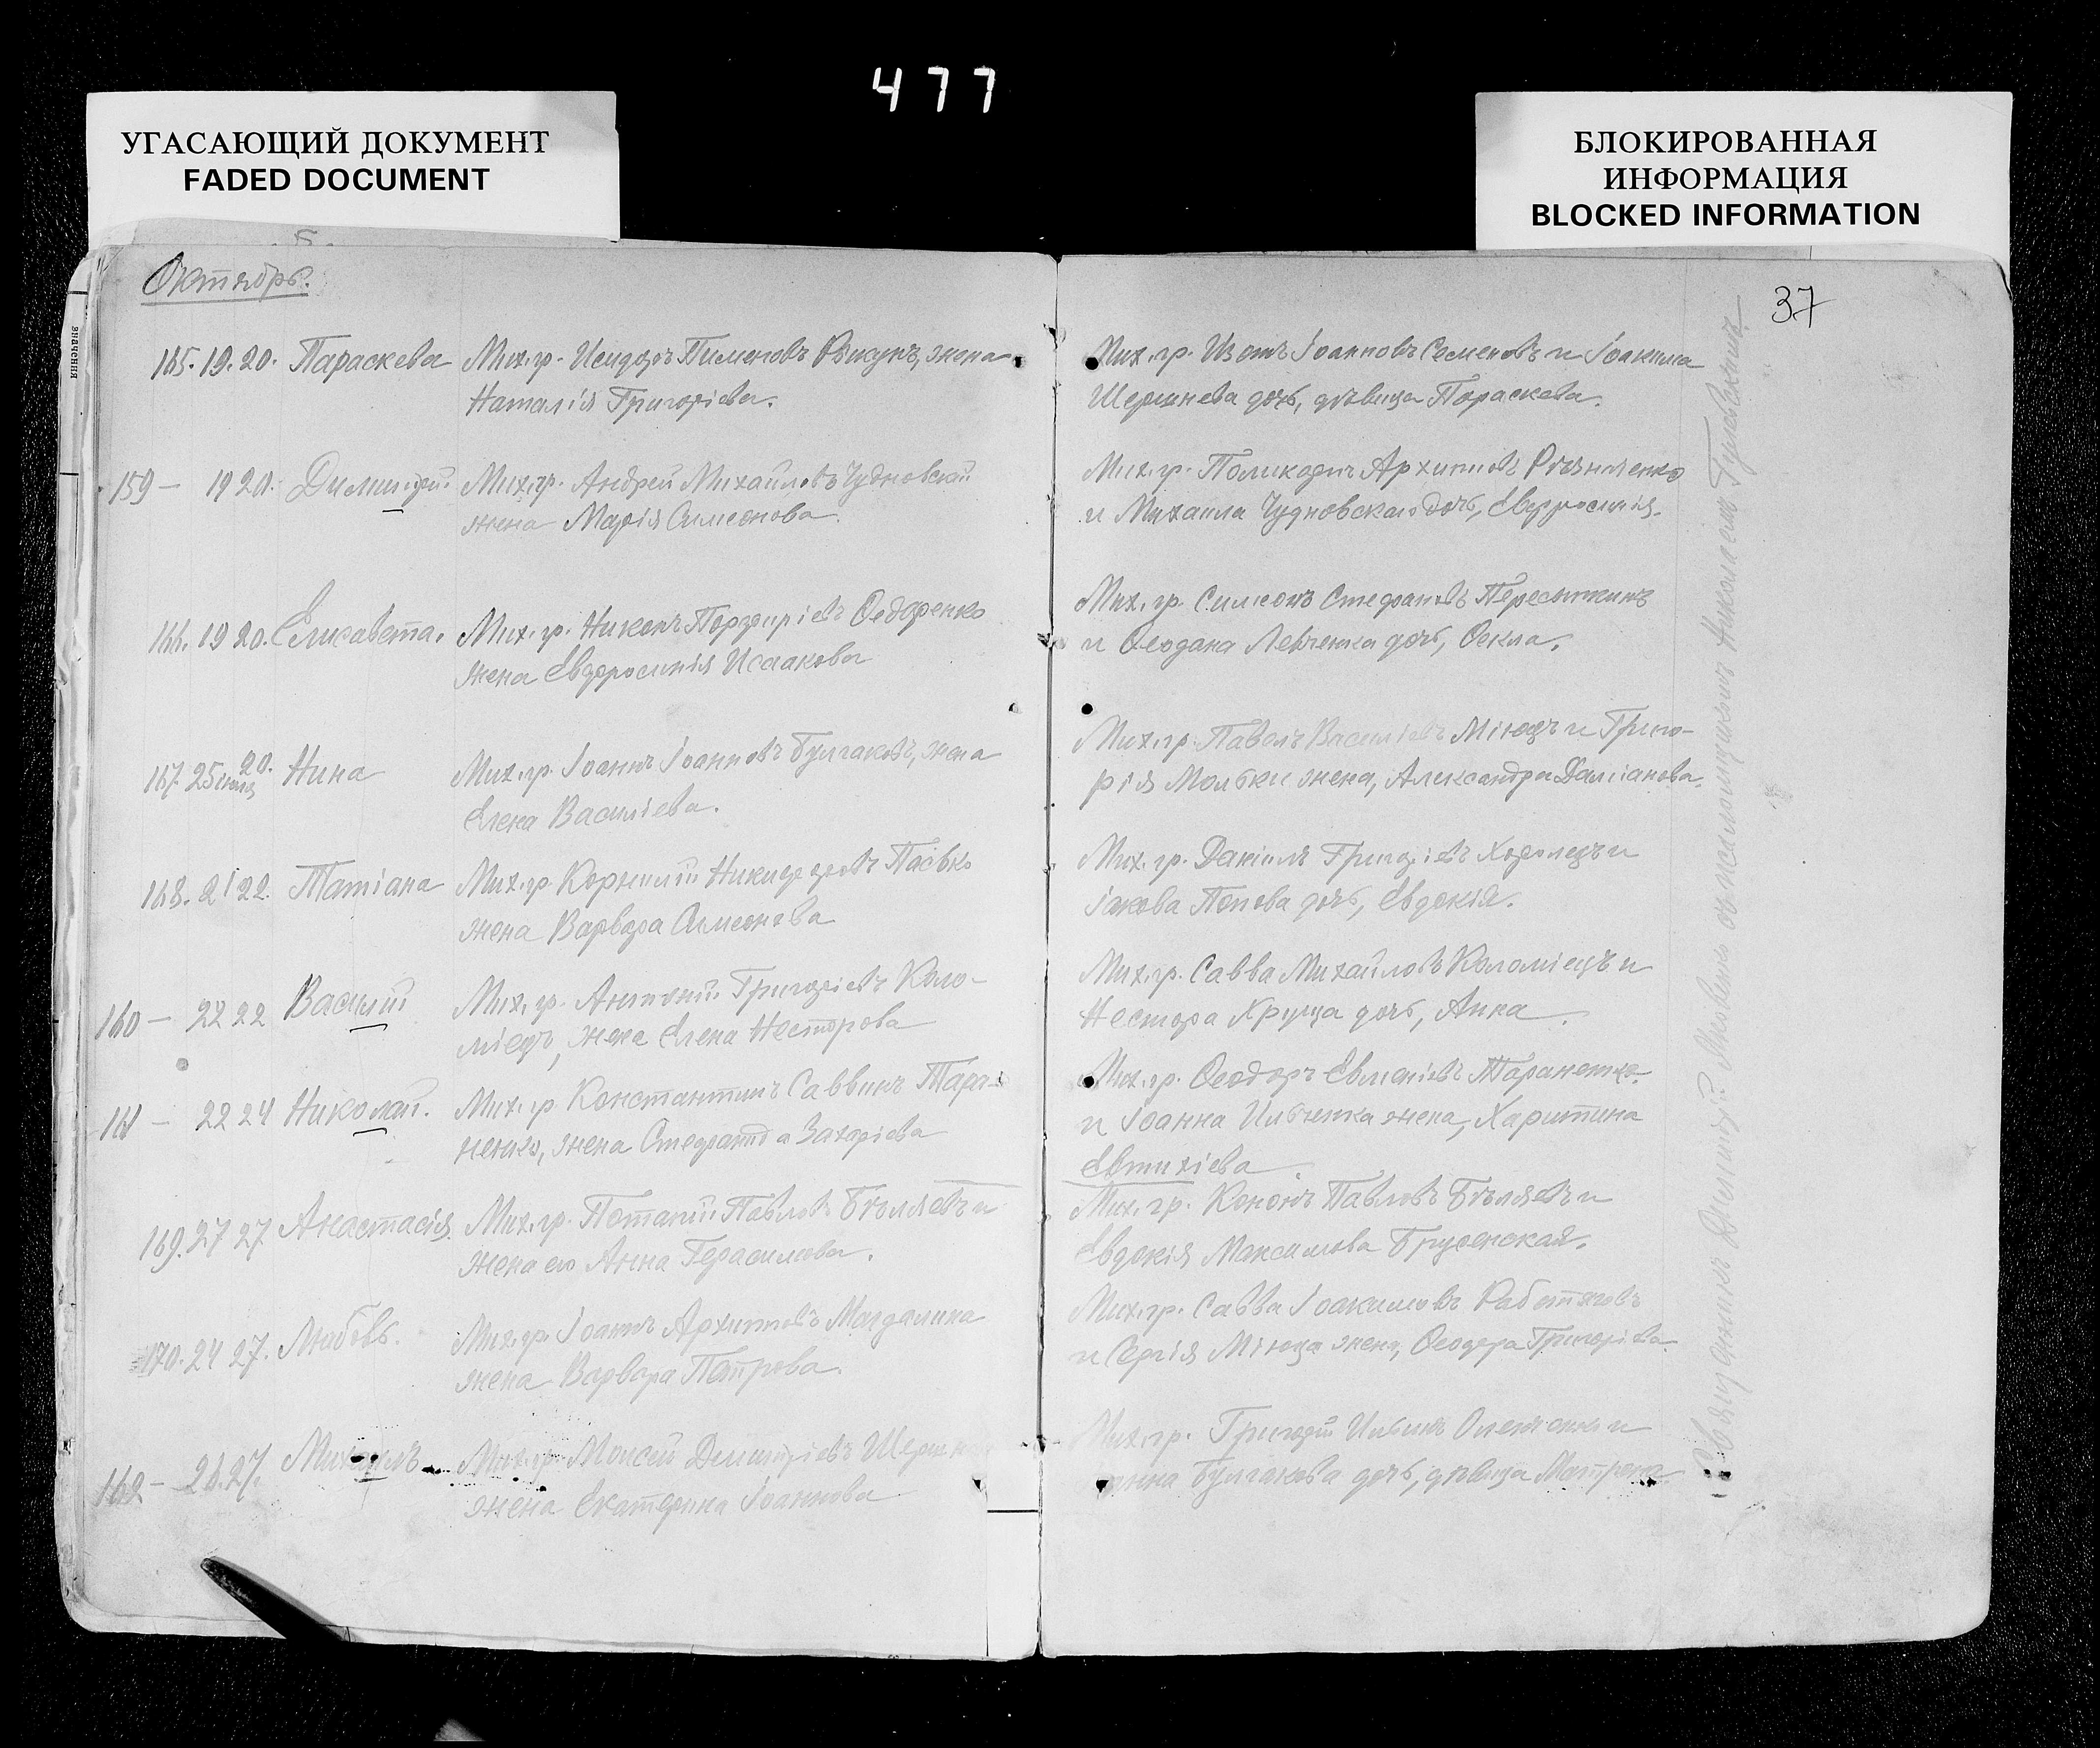 477
УГАСАЮЩИЙ ДОКУМЕНТ
FADED DOCUMENT
БЛОКИРОВАННАЯ
ИНФОРМАЦИЯ
BLOCKED INFORMATION
Октябрь.
165. 19. 20. Параскева Мих. гр. Исидоръ Пименовъ жена
Наталія Григоріева.
159 — 19 20. Димитрій Мих. гр. Андрей Михайловъ Чудновскій
жена Марія Симеонова.
166. 19 20. Елисавета. Мих. гр. Никонъ Порфиріевъ Ѳедоренко
жена Евфросинія Исаакова
167. 25 20. Нина Мих. гр. Іоаннъ Іоанновъ Булгаковъ, жена
Елена Василіева.
168. 21 22. Татіана Мих. гр. Корнилій Никифоровъ Пасько
жена Варвара Симеонова
160 — 22 22 Василій Мих. гр. Антоній Григоріевъ Коло-
міецъ, жена Елена Несторова
161 — 22 24 Николай. Мих. гр. Константинъ Саввинъ Тара-
ненко, жена Стефанида Захаріева
169. 27 27 Анастасія. Мих. гр. Потапій Павловъ Бѣляевъ и
жена его Анна Герасимова.
170. 24 27. Любовь. Мих. гр. Іоаннъ Архиповъ Магдалина
жена Варвара Петрова.
162 — 26. 27. Михаилъ Мих. гр. Моисей Димитріевъ
жена Екатерина Іоаннова
37
Мих. гр. Изотъ Іоанновъ Семеновъ и Іоакима
дочь, дѣвица Параскева.
Мих. гр. Поликарпъ Архиповъ
и Михаила Чудновскаго дочь, Евфросинія.
Мих. гр. Симеонъ Стефановъ Пересыпкинъ
и Ѳеодана Левченка дочь, Ѳекла.
Мих. гр. Павелъ Василіевъ Міюцъ и Григо-
рія жена, Александра Даміанова.
Мих. гр. Даніилъ Григоріевъ и
Іакова Попова дочь, Евдокія.
Мих. гр. Савва Михайловъ Коломіецъ и
Нестора Хруща дочь, Анна.
Мих. гр. Ѳеодоръ Евменіевъ Тараненко
и Іоанна Ивченка жена, Харитина
Евтихіева
Мих. гр. Кононъ Павловъ Бѣляевъ и
Евдокія Максимова
Мих. гр. Савва Іоакимовъ Работяговъ
и Сергія Міюца жена, Ѳеодора Григоріева
Мих. гр. Григорій Ивановъ и
Булгакова дочь, дѣвица Матрона
Священникъ Димитрій съ псаломщикомъ Николаемъ